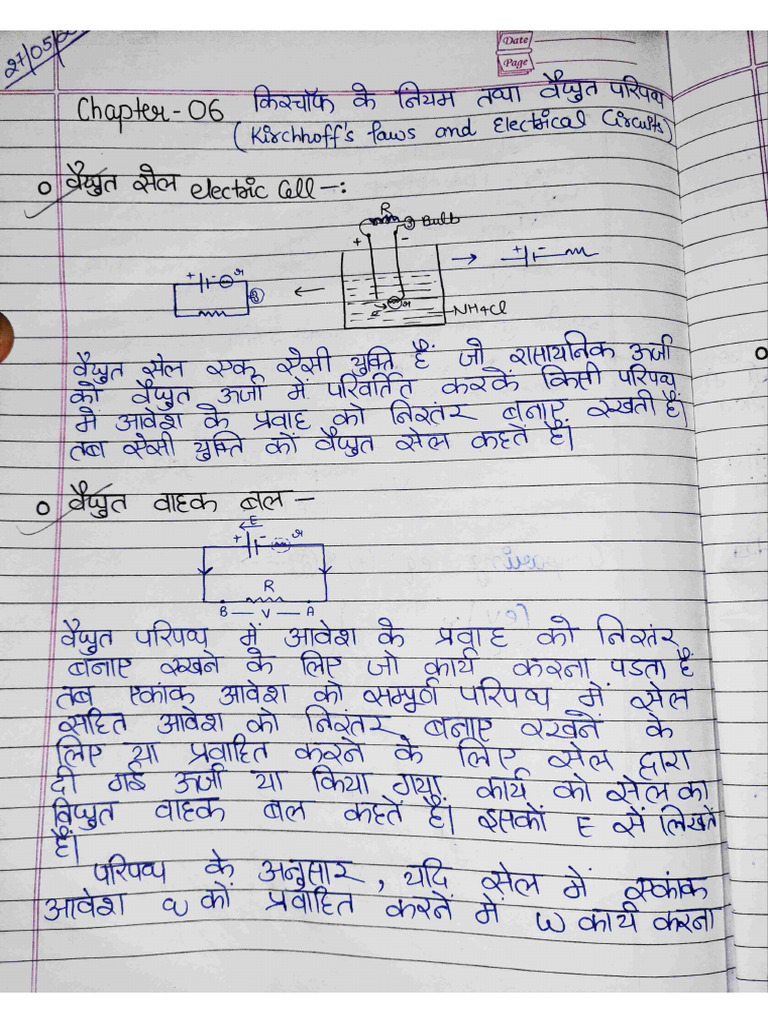 27/05/2
Date
Page
Chapter-06 किरचॉफ के नियम तथा वैधुत परिपथ
(Kirchhoff's laws and Electrical Circuits)
वैधुत सेल electric Cell -:
R
Bulb
+ -
+ - r
→ + -
←
NH4Cl
वैधुत सेल एक ऐसी युक्ति है जो रासायनिक ऊर्जा
को वैधुत ऊर्जा में परिवर्तित करकें किसी परिपथ
में आवेश के प्रवाह को निरतंर बनाए रखती हैं।
तब ऐसी युक्ति कों वैधुत सेल कहतें हैं।
वैधुत वाहक बल -
E
+ - r
R
B — V — A
वैधुत परिपथ में आवेश के प्रवाह को निरतंर
बनाए रखने के लिए जो कार्य करना पडता हैं
तब एकांक आवेश को सम्पूर्ण परिपथ में सेल
सहित आवेश को निरतंर बनाए रखनें के
लिए या प्रवाहित करनें के लिए सेल द्वारा
दी गई ऊर्जा या किया गया कार्य को सेल का
विधुत वाहक बल कहतें हैं। इसकों E सें लिखतें
हैं।
परिपथ के अनुसार, यदि सेल में एकांक
आवेश q कों प्रवाहित करनें में W कार्य करना